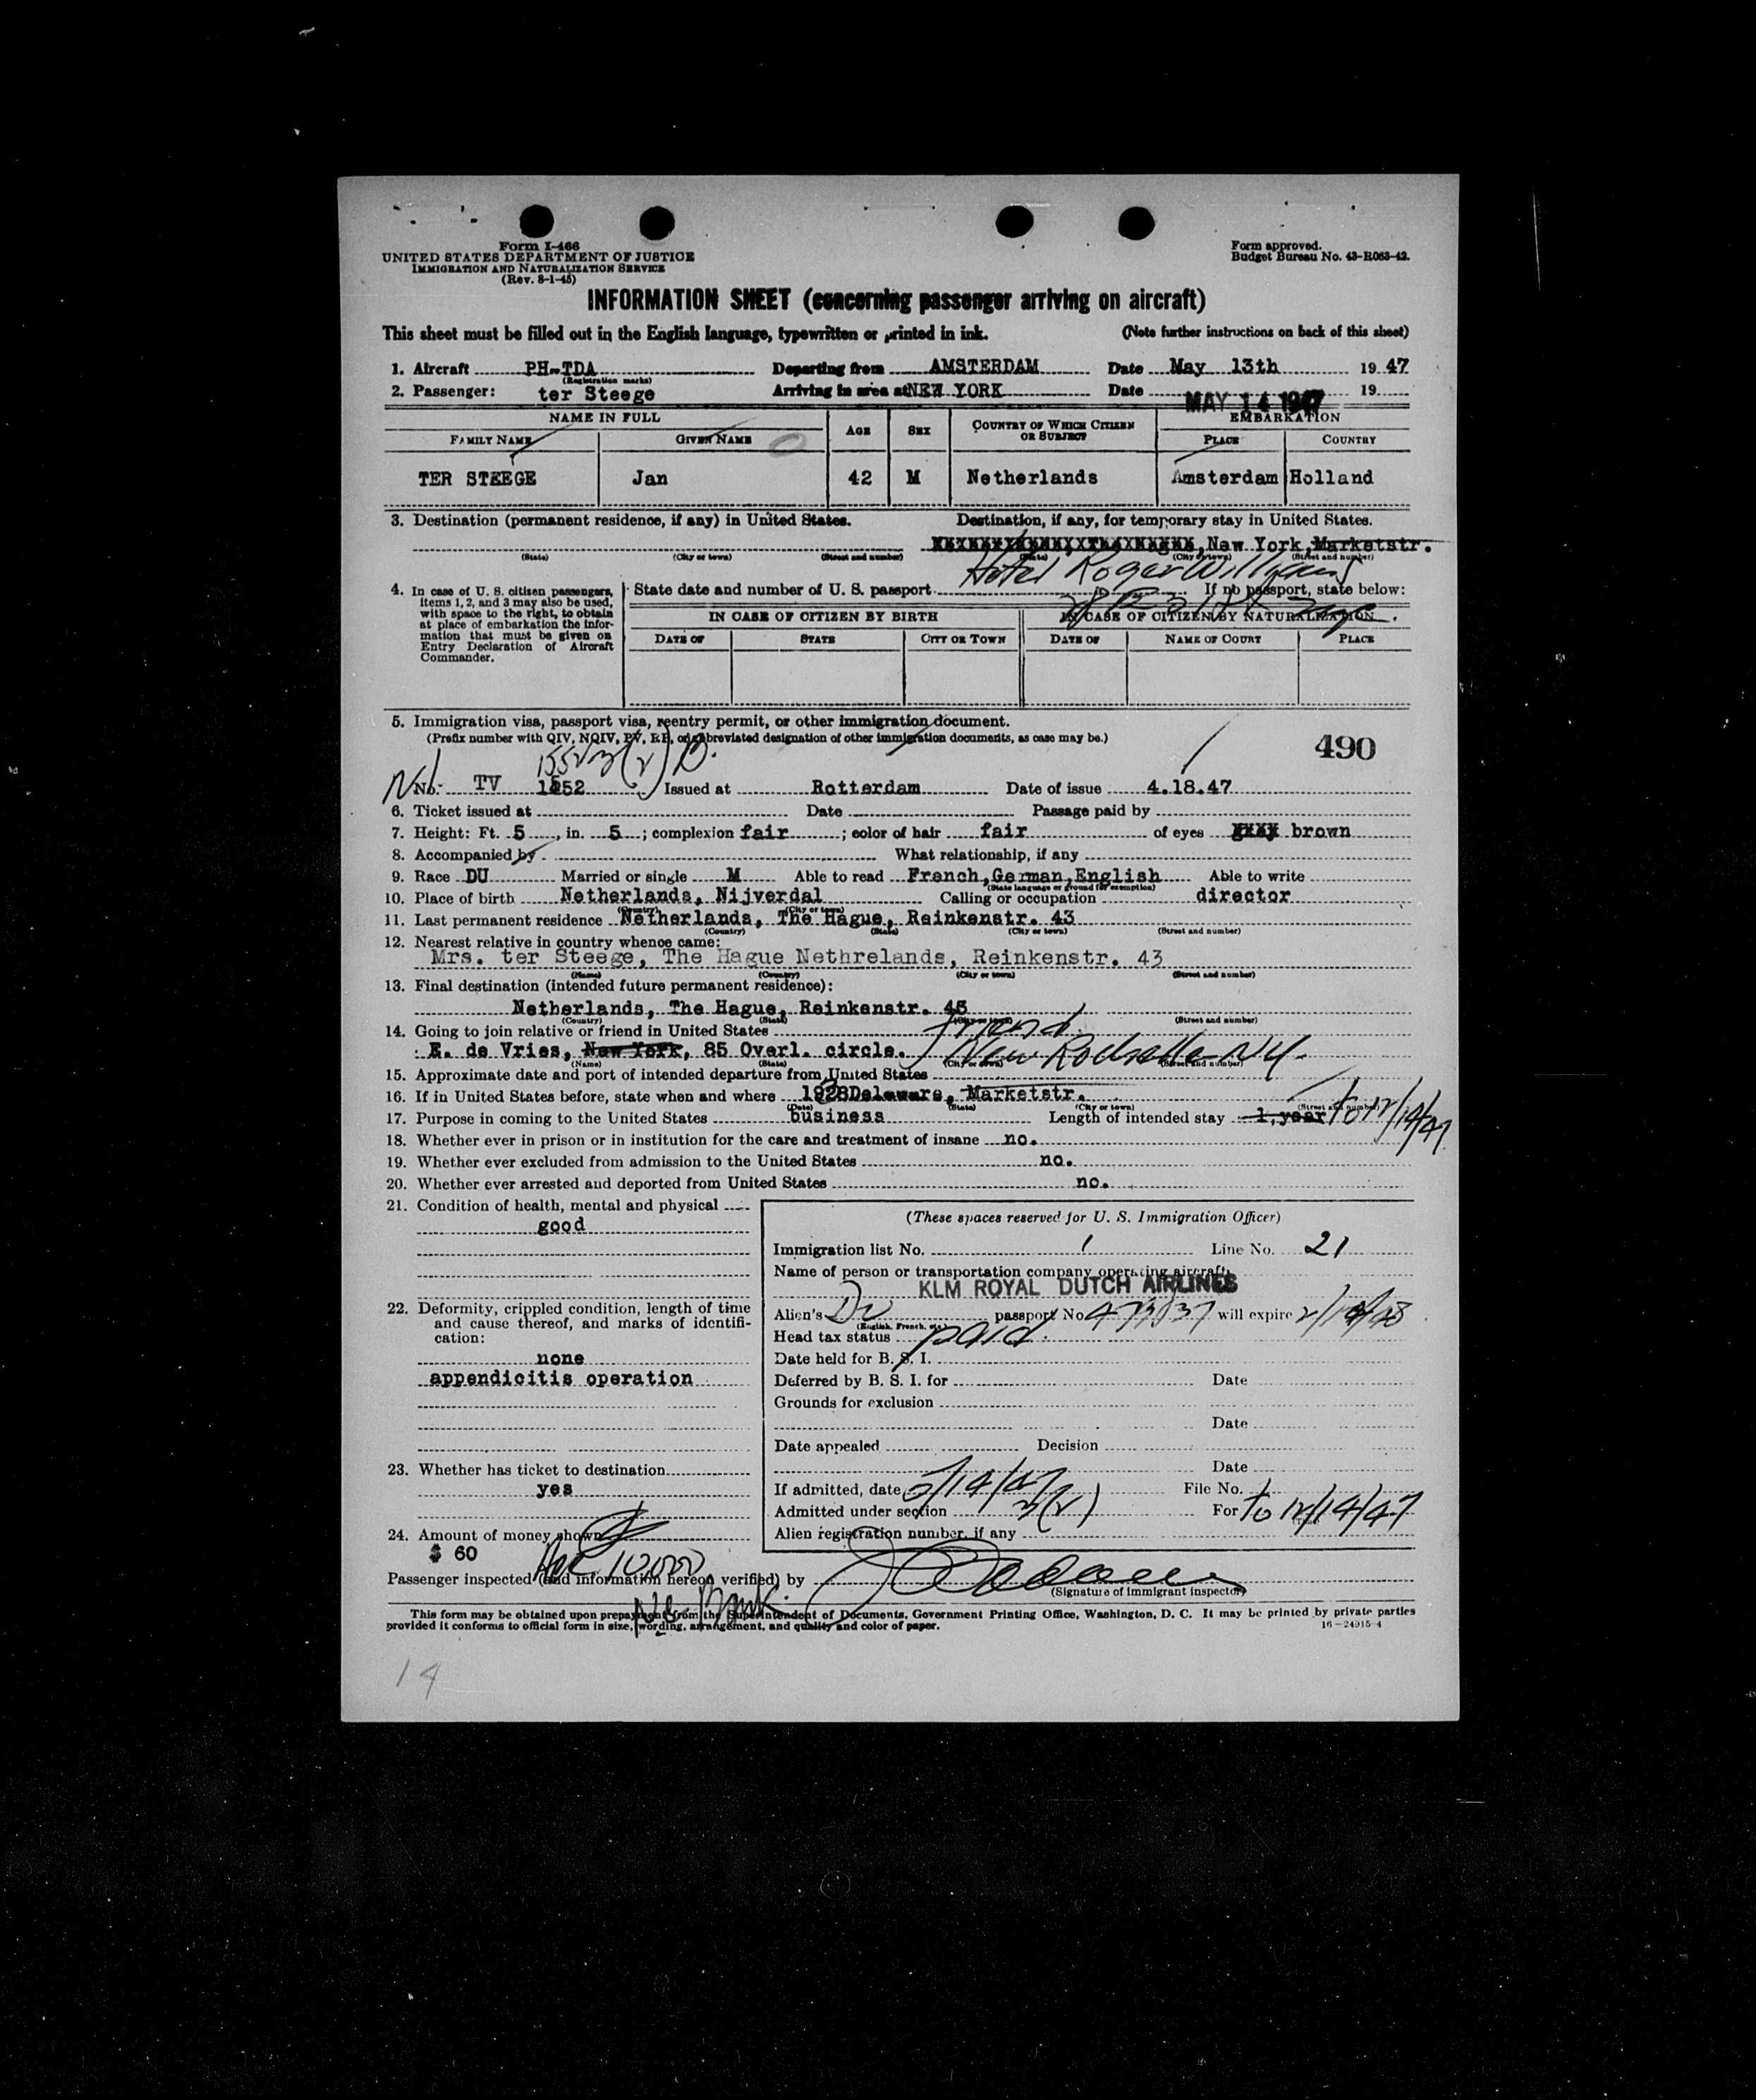 Form I-466
UNITED STATES DEPARTMENT OF JUSTICE
IMMIGRATION AND NATURALIZATION SERVICE
(Rev. 8-1-45)
Form approved.
Budget Bureau No. 43-R063-42.
INFORMATION SHEET (concerning passenger arriving on aircraft)
This sheet must be filled out in the English language, typewritten or printed in ink. (Note further instructions on back of this sheet)
1. Aircraft PH-TDA Departing from AMSTERDAM Date May 13th 19 47
(Registration marks)
2. Passenger: ter Steege Arriving in area at NEW YORK Date MAY 14 1947 19
NAME IN FULL AGE SEX COUNTRY OF WHICH CITIZEN OR SUBJECT EMBARKATION
FAMILY NAME GIVEN NAME PLACE COUNTRY
TER STEEGE Jan 42 M Netherlands Amsterdam Holland
3. Destination (permanent residence, if any) in United States. Destination, if any, for temporary stay in United States.
New York, Marketstr.
(State) (City or town) (Street and number) (State) (City or town) (Street and number)
Hotel Roger Williams
4. In case of U. S. citizen passengers, items 1, 2, and 3 may also be used, with space to the right, to obtain at place of embarkation the information that must be given on Entry Declaration of Aircraft Commander.
State date and number of U. S. passport If no passport, state below:
IN CASE OF CITIZEN BY BIRTH IN CASE OF CITIZEN BY NATURALIZATION
DATE OF STATE CITY OR TOWN DATE OF NAME OF COURT PLACE
5. Immigration visa, passport visa, reentry permit, or other immigration document.
(Prefix number with QIV, NQIV, PV, RP, or abbreviated designation of other immigration documents, as case may be.)
490
No. TV 1552 Issued at Rotterdam Date of issue 4.18.47
6. Ticket issued at Date Passage paid by
7. Height: Ft. 5, in. 5; complexion fair; color of hair fair of eyes brown
8. Accompanied by What relationship, if any
9. Race DU Married or single M Able to read French, German, English Able to write
(State language or ground for exemption)
10. Place of birth Netherlands, Nijverdal Calling or occupation director
(Country) (City or town)
11. Last permanent residence Netherlands, The Hague, Reinkenstr. 43
(Country) (State) (City or town) (Street and number)
12. Nearest relative in country whence came:
Mrs. ter Steege, The Hague Nethrelands, Reinkenstr. 43
(Name) (Country) (City or town) (Street and number)
13. Final destination (intended future permanent residence):
Netherlands, The Hague, Reinkenstr. 43
(Country) (State) (City or town) (Street and number)
14. Going to join relative or friend in United States friend
E. de Vries, New York, 85 Overl. circle. New Rochelle NY.
(Name) (State) (City or town) (Street and number)
15. Approximate date and port of intended departure from United States
16. If in United States before, state when and where 1938 Delaware, Marketstr.
(Date) (State) (City or town) (Street and number)
17. Purpose in coming to the United States business Length of intended stay 1 year to 12/14/47
18. Whether ever in prison or in institution for the care and treatment of insane no.
19. Whether ever excluded from admission to the United States no.
20. Whether ever arrested and deported from United States no.
21. Condition of health, mental and physical
good
22. Deformity, crippled condition, length of time and cause thereof, and marks of identification:
none
appendicitis operation
23. Whether has ticket to destination
yes
24. Amount of money shown
$ 60
(These spaces reserved for U. S. Immigration Officer)
Immigration list No. 1 Line No. 21
Name of person or transportation company operating aircraft
KLM ROYAL DUTCH AIRLINES
Alien's Du passport No. will expire
(English, French, etc.)
Head tax status paid.
Date held for B. S. I.
Deferred by B. S. I. for Date
Grounds for exclusion
Date
Date appealed Decision
Date
If admitted, date 5/14/47 File No.
Admitted under section 3(2) For to 12/14/47
Alien registration number, if any
Passenger inspected (and information hereon verified) by
(Signature of immigrant inspector)
This form may be obtained upon prepayment from the Superintendent of Documents, Government Printing Office, Washington, D. C. It may be printed by private parties
provided it conforms to official form in size, wording, arrangement, and quality and color of paper. 16-24915-4
14